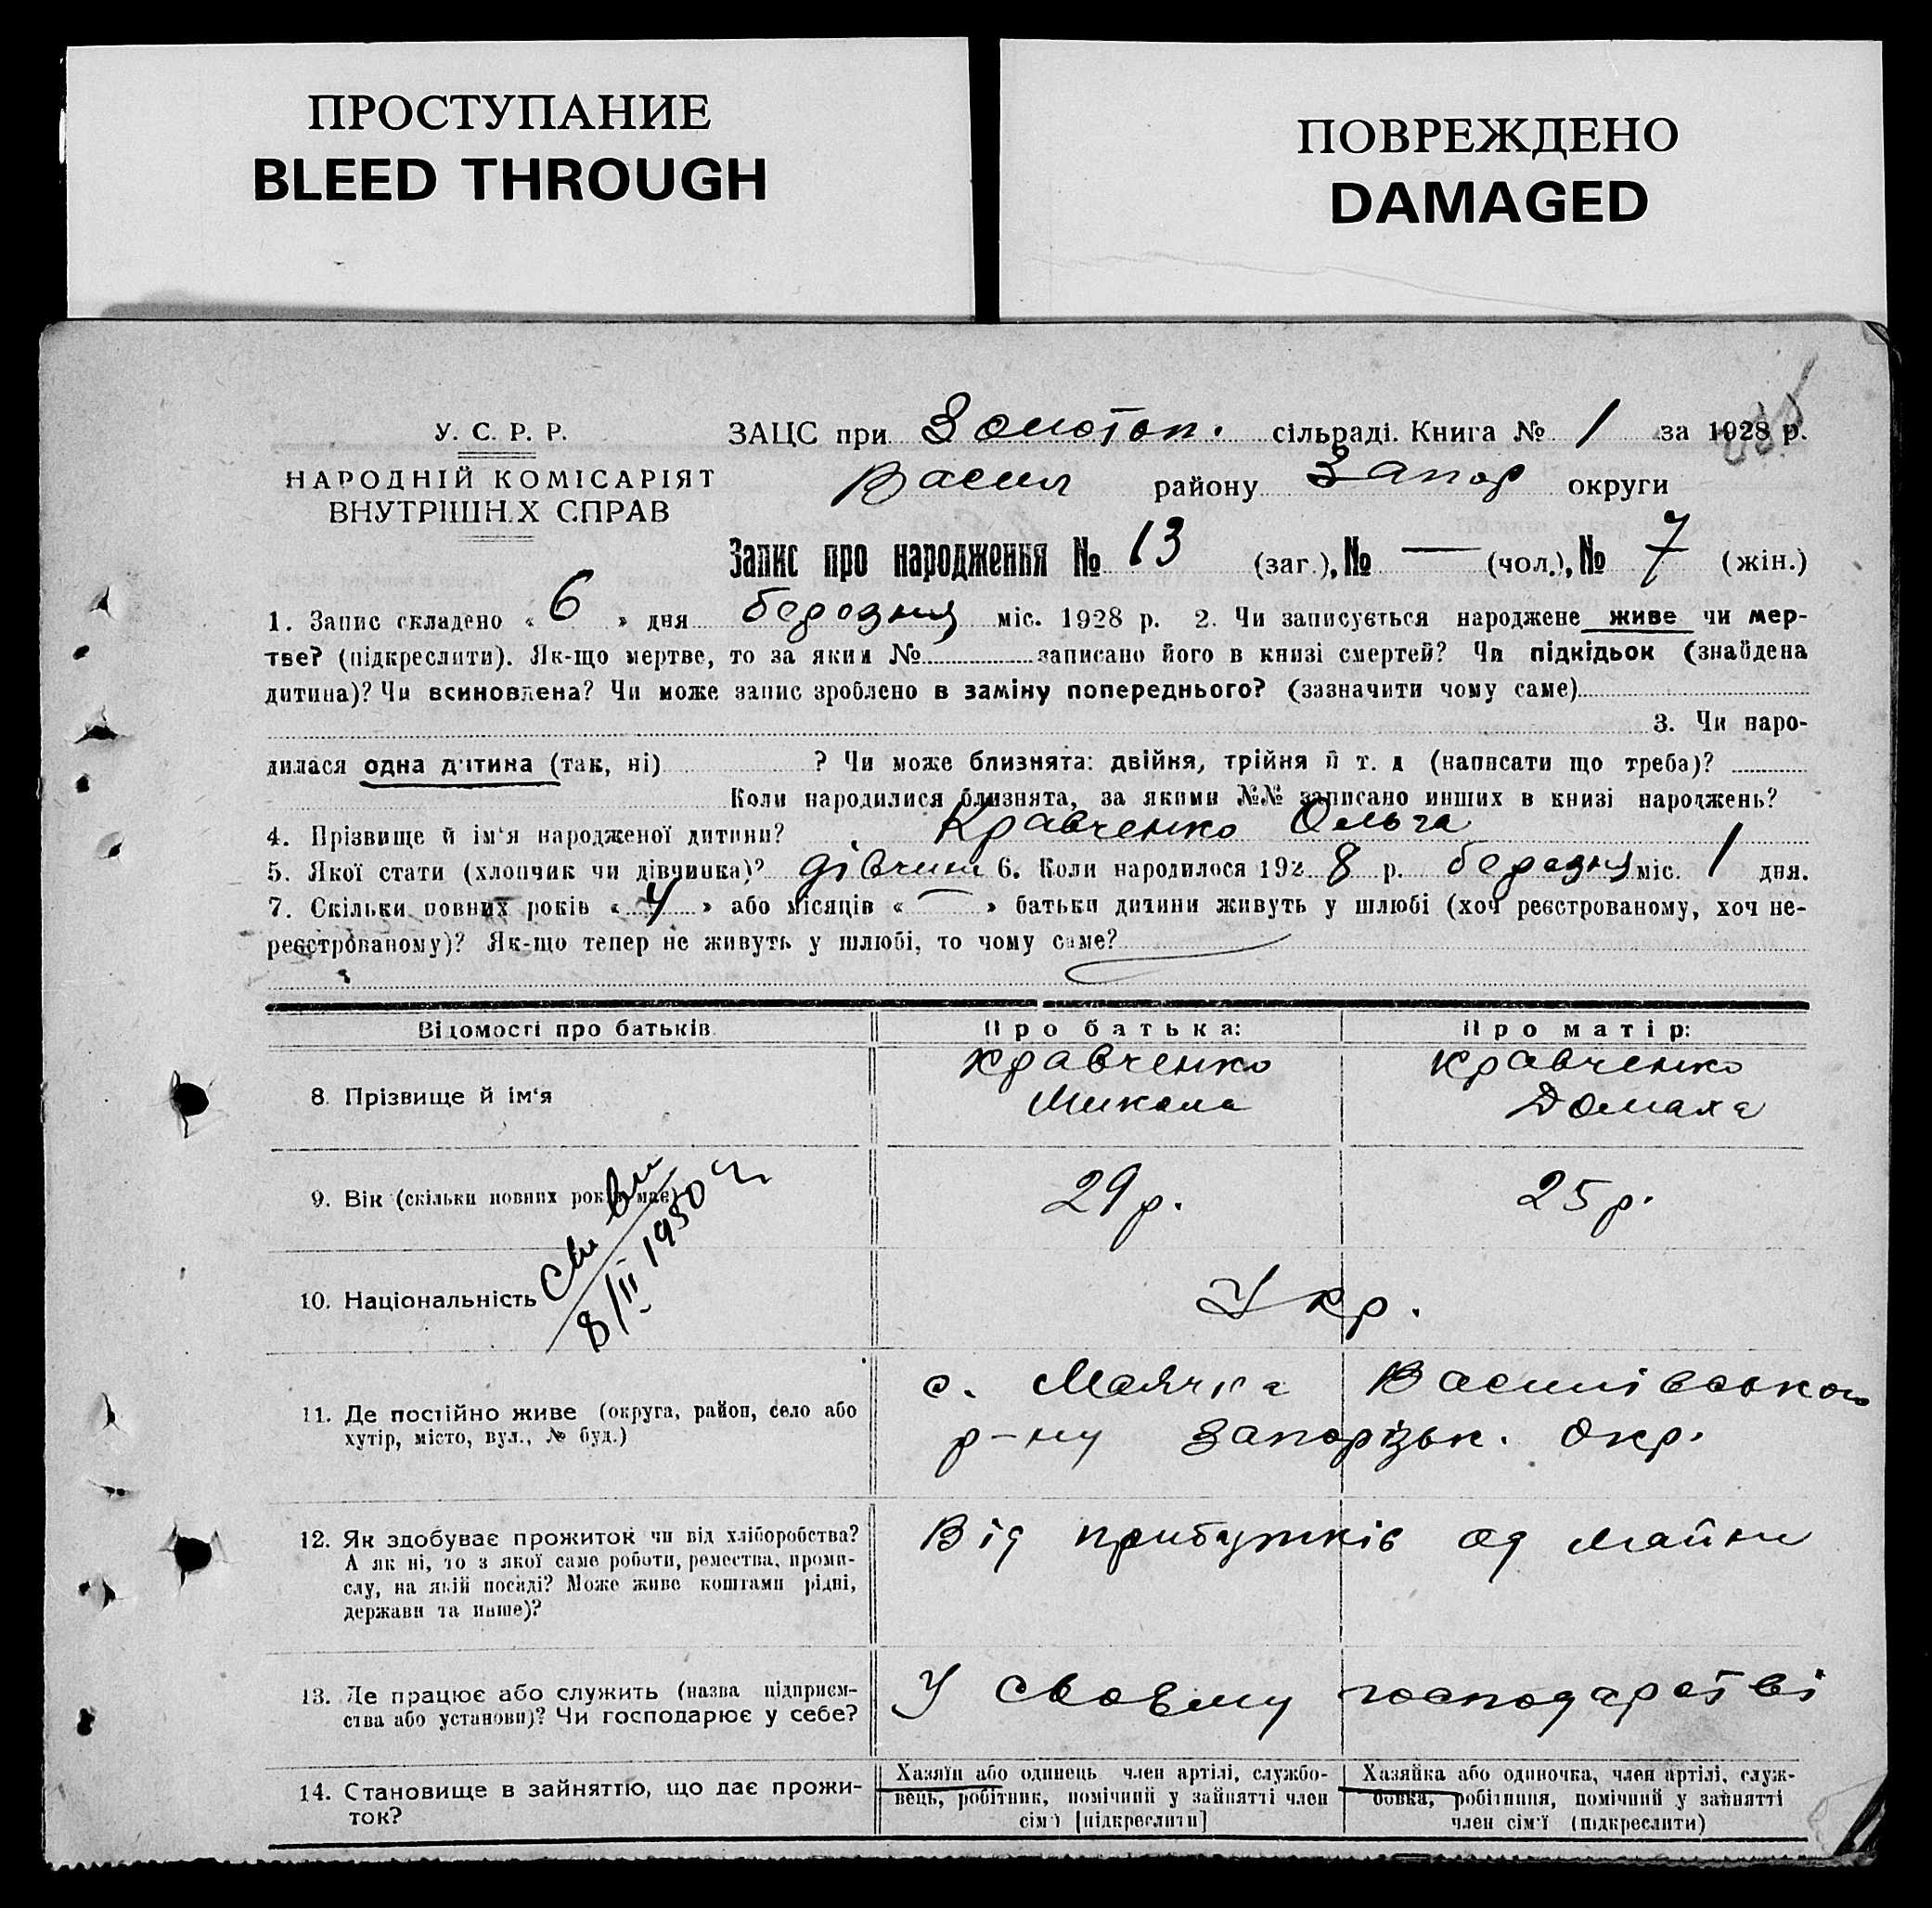 ПРОСТУПАНИЕ
BLEED THROUGH
ПОВРЕЖДЕНО
DAMAGED
У. С. Р. Р.
НАРОДНІЙ КОМІСАРІЯТ
ВНУТРІШНІХ СПРАВ
ЗАЦС при Золотоп. сільраді. Книга № 1 за 1928 р.
Васил району Запор округи
Запис про народження № 13 (заг.), № — (чол.), № 7 (жін.)
1. Запис складено « 6 » дня березня міс. 1928 р. 2. Чи записується народжене живе чи мер-
тве? (підкреслити). Як-що мертве, то за яким № записано його в книзі смертей? Чи підкідьок (знайдена
дитина)? Чи всиновлена? Чи може запис зроблено в заміну попереднього? (зазначити чому саме)
3. Чи наро-
дилася одна дитина (так, ні) ? Чи може близнята: двійня, трійня й т. д (написати що треба)?
Коли народилися близнята, за якими №№ записано инших в книзі народжень?
4. Прізвище й ім'я народженої дитини? Кравченко Ольга
5. Якої стати (хлопчик чи дівчинка)? дівчина 6. Коли народилося 1928 р. березня міс. 1 дня.
7. Скільки повних років « 4 » або місяців « — » батьки дитини живуть у шлюбі (хоч реєстрованому, хоч не-
реєстрованому)? Як-що тепер не живуть у шлюбі, то чому саме?
Відомості про батьків Про батька: Про матір:
8. Прізвище й ім'я
Кравченко
Микола
Кравченко
Домаха
9. Вік (скільки повних років має) 29 р. 25 р.
8/II 1950
10. Національність Укр.
11. Де постійно живе (округа, район, село або
хутір, місто, вул., № буд.)
с. Маячка Василівського
р-ну Запорізьк. Окр.
12. Як здобуває прожиток чи від хліборобства?
А як ні, то з якої саме роботи, ремества, проми-
слу, на якій посаді? Може живе коштами рідні,
держави та инше)?
Від прибутків од майна
13. Де працює або служить (назва підприєм-
ства або установи)? Чи господарює у себе?
У своєму господарстві
14. Становище в зайняттю, що дає прожи-
ток?
Хазяїн або одинець член артілі, службо-
вець, робітник, помічний у зайнятті член
сім'ї [підкреслити]
Хазяйка або одиночка, член артілі, служ-
бовка, робітниця, помічний у зайнятті
член сім'ї (підкреслити)